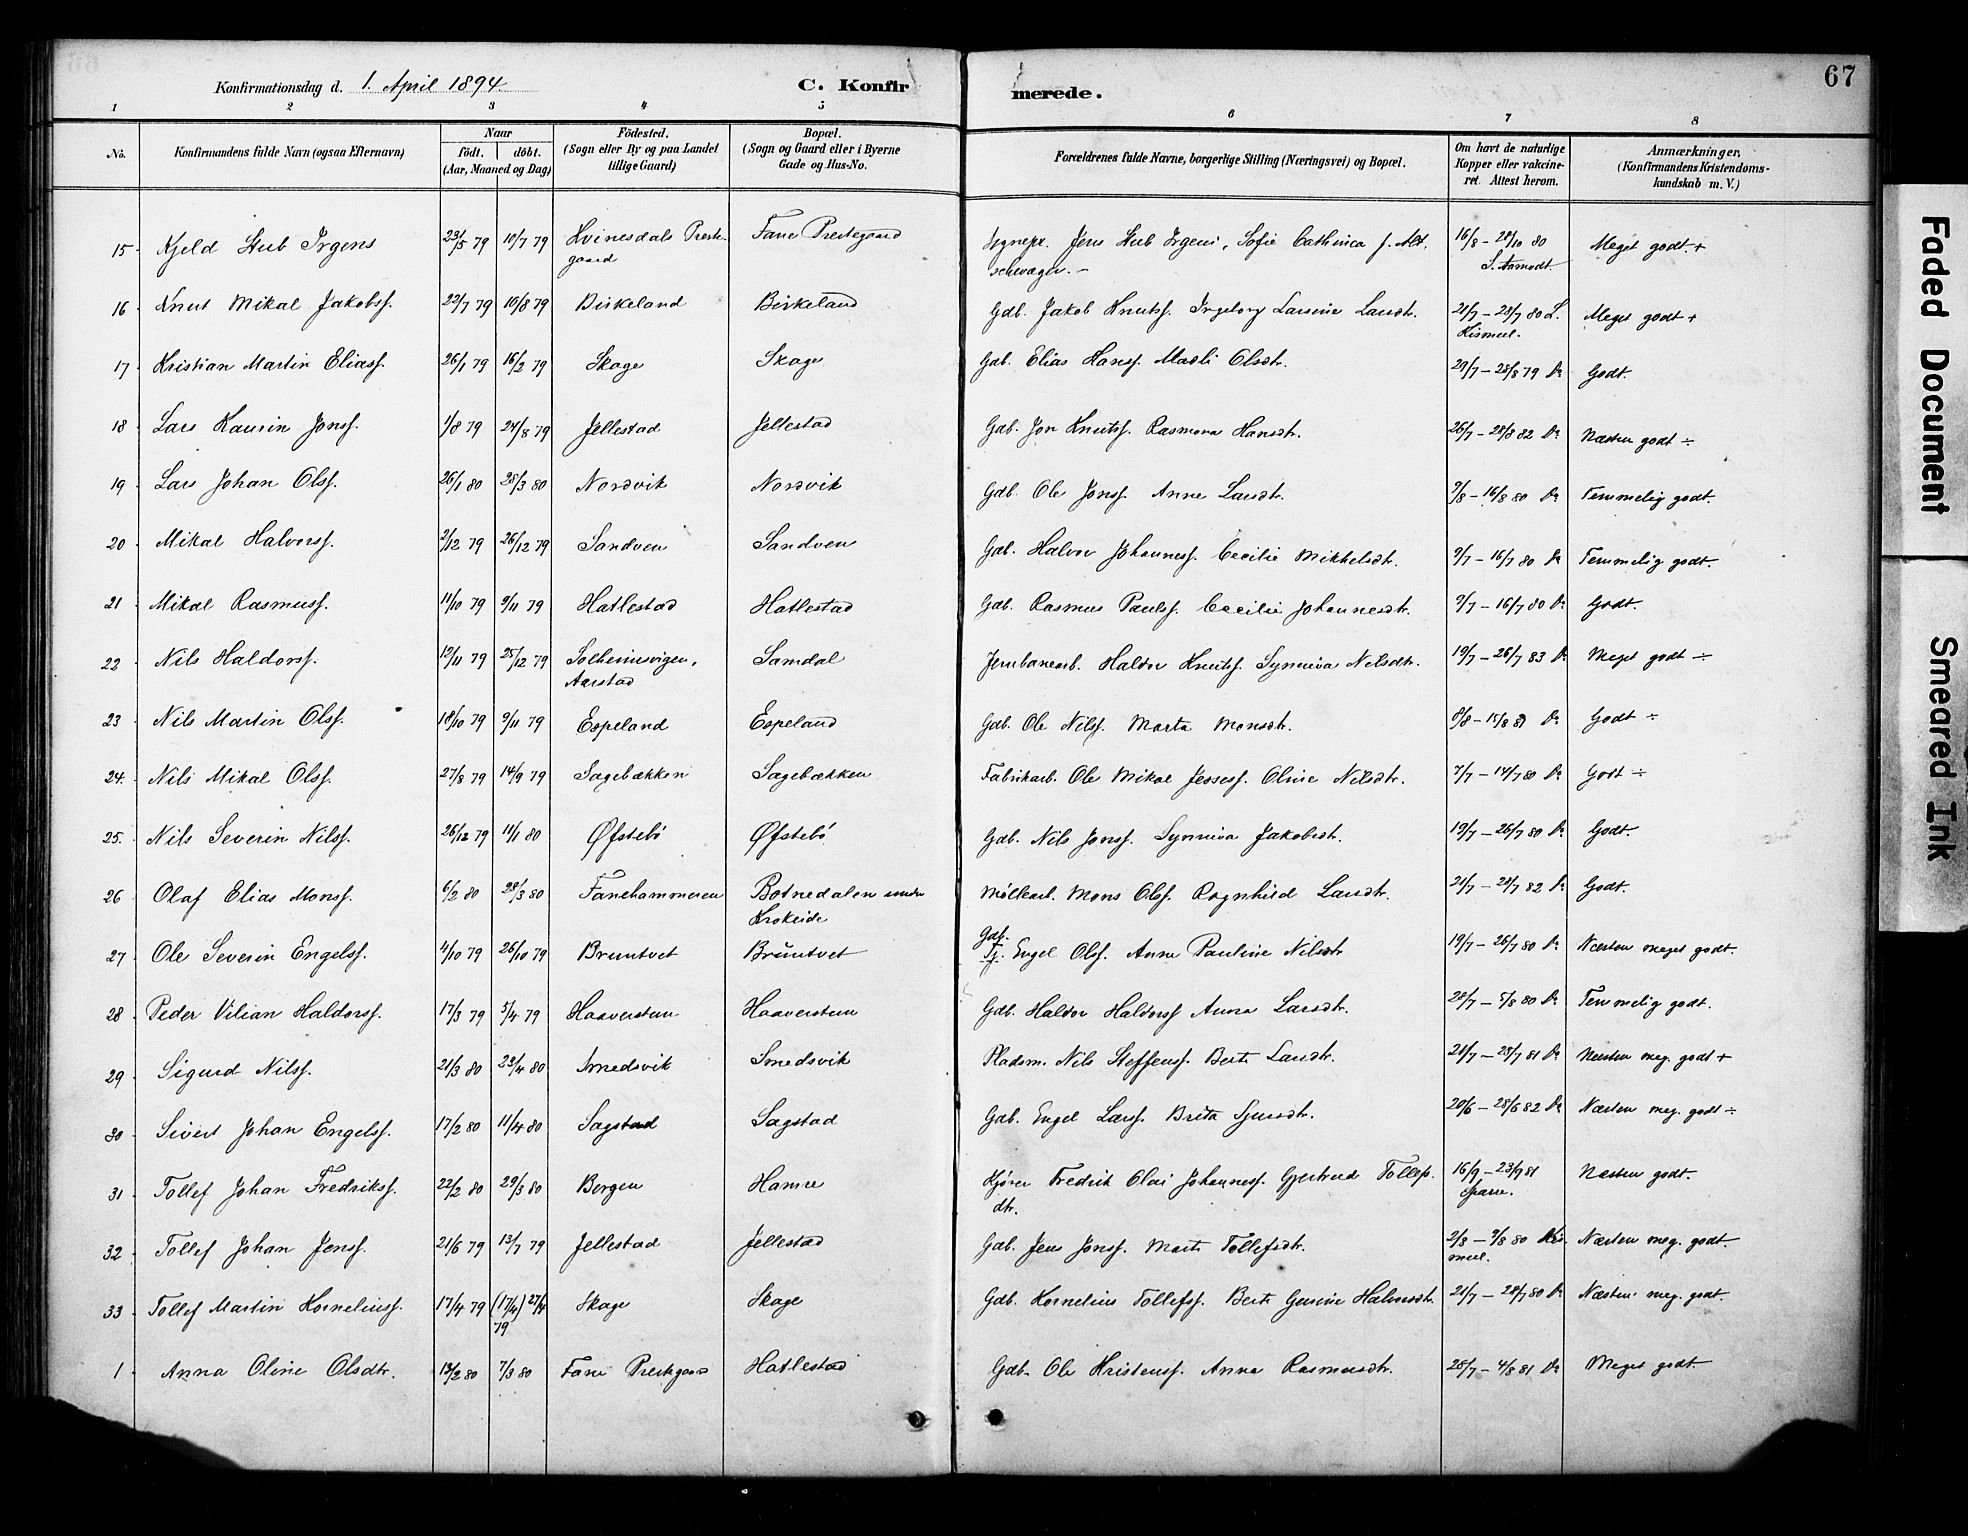 Konfirmationsdag d. 1. April 1894
C. Konfirmerede.
67
1 2 3 4 5 6 7 8
No.
Konfirmandens fulde Navn (ogsaa Efternavn)
Naar
födt. döbt.
(Aar, Maaned og Dag)
Födested.
(Sogn eller By og paa Landet
tillige Gaard)
Bopæl.
(Sogn og Gaard eller i Byerne
Gade og Hus-No.
Forældrenes fulde Navne, borgerlige Stilling (Næringsvei) og Bopæl.
Om havt de naturlige
Kopper eller vakcine-
ret. Attest herom.
Anmærkninger,
(Konfirmandens Kristendoms-
kundskab m. V.)
15 Kjeld Stub Irgens 23/5 79 10/7 79 Kvinesdals Preste- Fane Prestegaard Sognepr. Jens Stub Irgens, Sofie Cathinca f. Alt- 16/8 - 28/10 80 Meget godt +
gaard schwager. - S. Aamodt.
16 Knut Mikal Jakobsf. 22/7 79 10/8 79 Birkeland Birkeland Gdb. Jakob Knutsf. Ingeborg Larsine Larsdtr. 21/7 - 28/7 80 L. Meget godt +
Kismul.
17 Kristian Martin Eliasf. 26/1 79 16/2 79 Skage Skage Gdb. Elias Hansf. Madli Olsdtr. 29/7 - 28/8 79 Do Godt.
18 Lars Kaurin Jonsf. 1/8 79 24/8 79 Jellestad Jellestad Gdb. Jon Knutsf. Rasmona Hansdtr. 26/7 - 28/8 82 Do Næsten godt ÷
19 Lars Johan Olsf. 26/1 80 28/3 80 Nordvik Nordvik Gdb. Ole Jonsf. Anne Larsdtr. 9/8 - 16/8 80 Do Temmelig godt.
20 Mikal Halvorsf. 2/12 79 26/12 79 Sandven Sandven Gdb. Halvor Johannesf. Cecilie Mikkelsdtr. 9/7 - 16/7 80 Do Temmelig godt.
21 Mikal Rasmusf. 11/10 79 9/11 79 Hatlestad Hatlestad Gdb. Rasmus Paulsf. Cecilie Johannesdtr. 9/7 - 16/7 80 Do Godt.
22 Nils Haldorsf. 12/11 79 25/12 79 Solheimsvigen, Samdal Jernbanearb. Haldor Knutsf. Synneva Nilsdtr. 19/7 - 26/7 83 Do Meget godt ÷
Aarstad
23 Nils Martin Olsf. 18/10 79 9/11 79 Espeland Espeland Gdb. Ole Nilsf. Marta Monsdtr. 8/8 - 15/8 81 Do Godt ÷
24. Nils Mikal Olsf. 27/8 79 14/9 79 Sagebækken Sagebækken Fabrikarb. Ole Mikal Jessesf. Oline Nilsdtr. 7/7 - 14/7 80 Do Godt ÷
25. Nils Severin Nilsf. 26/12 79 11/1 80 Øfstebö Øfstebö Gdb. Nils Jonsf. Synneva Jakobsdtr. 19/7 - 26/7 80 Do Godt.
26 Olaf Elias Monsf. 6/2 80 28/3 80 Fanehammeren Botnedalen under Møllearb. Mons Olsf. Ragnhild Larsdtr. 21/7 - 28/7 82 Do Godt.
Krokeide
27 Ole Severin Engelsf. 4/10 79 26/10 79 Bruntvet Bruntvet Gdb. Engel Olsf. Anna Pauline Nilsdtr 19/7 - 26/7 80 Do Næsten meget godt.
28 Peder Vilian Haldorsf. 17/3 79 5/4 79 Haaverstun Haaverstun Gdb. Haldor Haldorsf Anna Larsdtr. 28/7 - 5/8 80 Do Temmelig godt.
29 Sigurd Nilsf. 21/3 80 23/4 80 Smedsvik Smedsvik Pladsm. Nils Steffensf. Berte Larsdtr. 21/7 - 28/7 81 Do Næsten meg. godt +
30 Sivert Johan Engelsf. 17/2 80 11/4 80 Sagstad Sagstad Gdb. Engel Larsf. Brita Sjursdtr. 20/6 - 28/6 82 Do Næsten meg. godt ÷
31 Tollef Johan Fredriksf. 22/2 80 29/3 80 Bergen Hamre Kjører Fredrik Olai Johannesf. Gjertrud Tollefs- 16/9 - 23/9 81 Næsten godt.
dtr. Sparre.
32 Tollef Johan Jensf. 21/6 79 13/7 79 Jellestad Jellestad Gdb. Jens Jonsf. Marte Tollefsdtr. 2/8 - 9/8 80 Kis- Næsten meg. godt.
mul.
33 Tollef Martin Kornelinsf. 17/4 79 (17/4) 27/4 Skage Skage Gdb. Kornelius Tollefsf. Berte Gurine Halvorsdtr. 21/7 - 28/7 80 Do Næsten meg. godt.
79
1 Anna Oline Olsdtr. 13/2 80 7/3 80 Fane Prestgaard Hatlestad Gdb. Ole Kristensf. Anna Rasmusdtr. 28/7 - 4/8 81 Do Meget godt
Faded Document
Smeared Ink